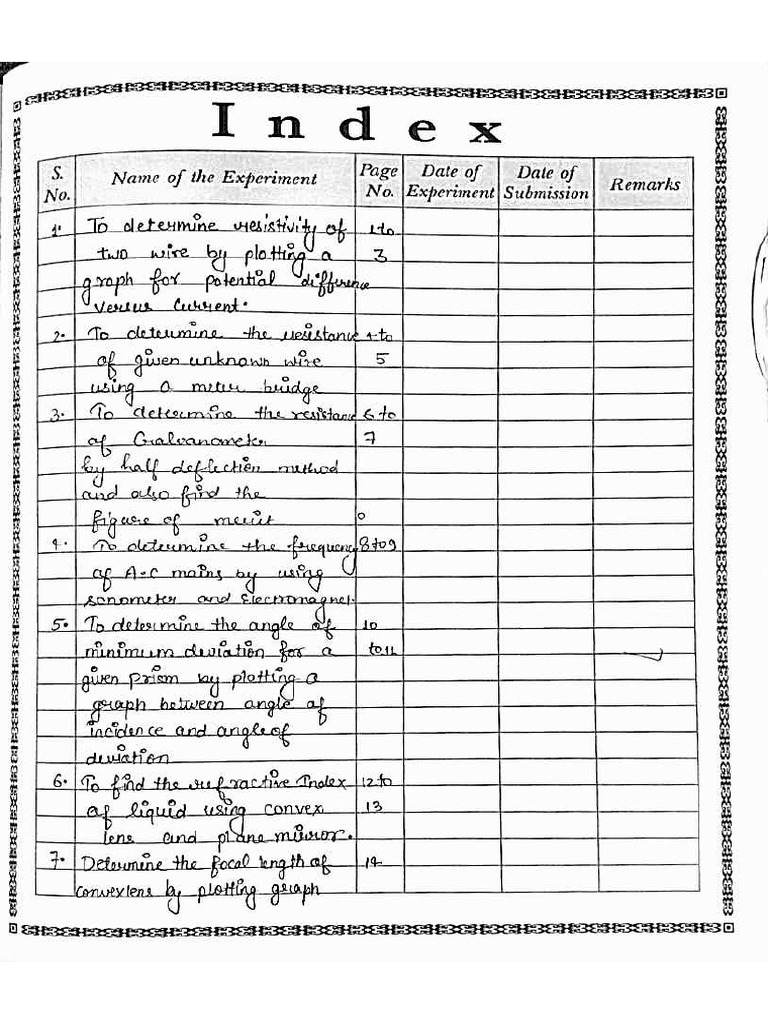 Index
S. No. Name of the Experiment Page No. Date of Experiment Date of Submission Remarks
1. To determine resistivity of 1 to
two wire by plotting a 3
graph for potential difference
versus current.
2. To determine the resistance 4 to
of given unknown wire 5
using a meter bridge
3. To determine the resistance 6 to
of Galvanometer 7
by half deflection method
and also find the
figure of merit
4. To determine the frequency 8 to 9
of A.C mains by using
sonometer and Electromagnet.
5. To determine the angle of 10
minimum deviation for a to 11
given prism by plotting a
graph between angle of
incidence and angle of
deviation
6. To find the refractive Index 12 to
of liquid using convex 13
lens and plane mirror.
7. Determine the focal length of 14
convex lens by plotting graph